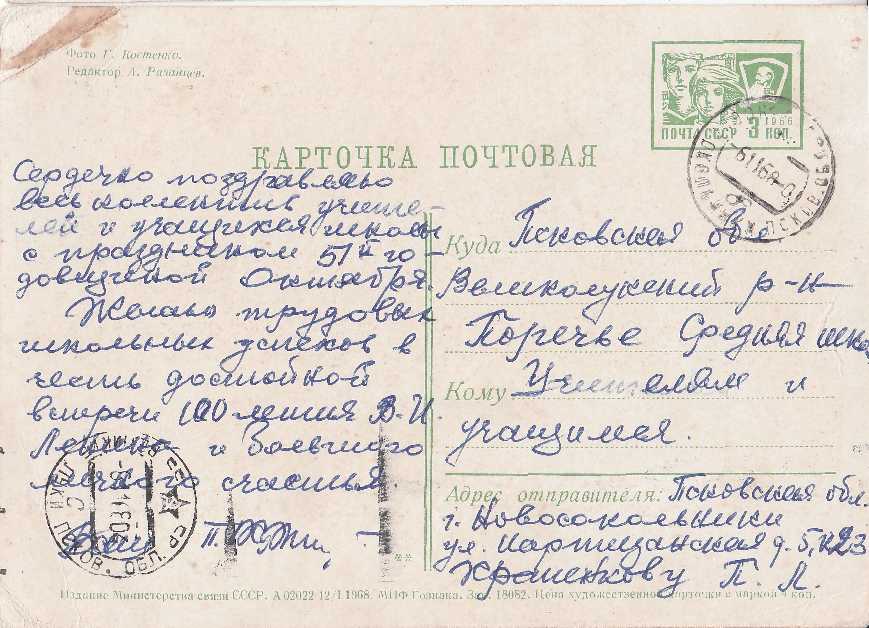 Фото Г. Костенко.
Редактор А. Рязанцев.
1966
ПОЧТА СССР 3 КОП.
КАРТОЧКА ПОЧТОВАЯ
Сердечно поздравляю
весь коллектив учите-
лей и учащихся школы
с праздником 51й го-
довщиной Октября.
Желаю трудовых
школьных успехов в
честь достойной
встречи 100 летия В. И.
Ленина и большого
личного счастья.
Куда Псковская обл.
Великолукский р-н
Поречье Средняя шко
Кому Учителям и
учащимся.
Адрес отправителя: Псковская обл.
г. Новосокольники
ул. Партизанская д. 5, к 23
Храпенкову П. Л.
Издание Министерства связи СССР. А 02022 12/I 1968. МПФ Гознака. Зак. 18082. Цена художественной карточки с маркой 4 коп.